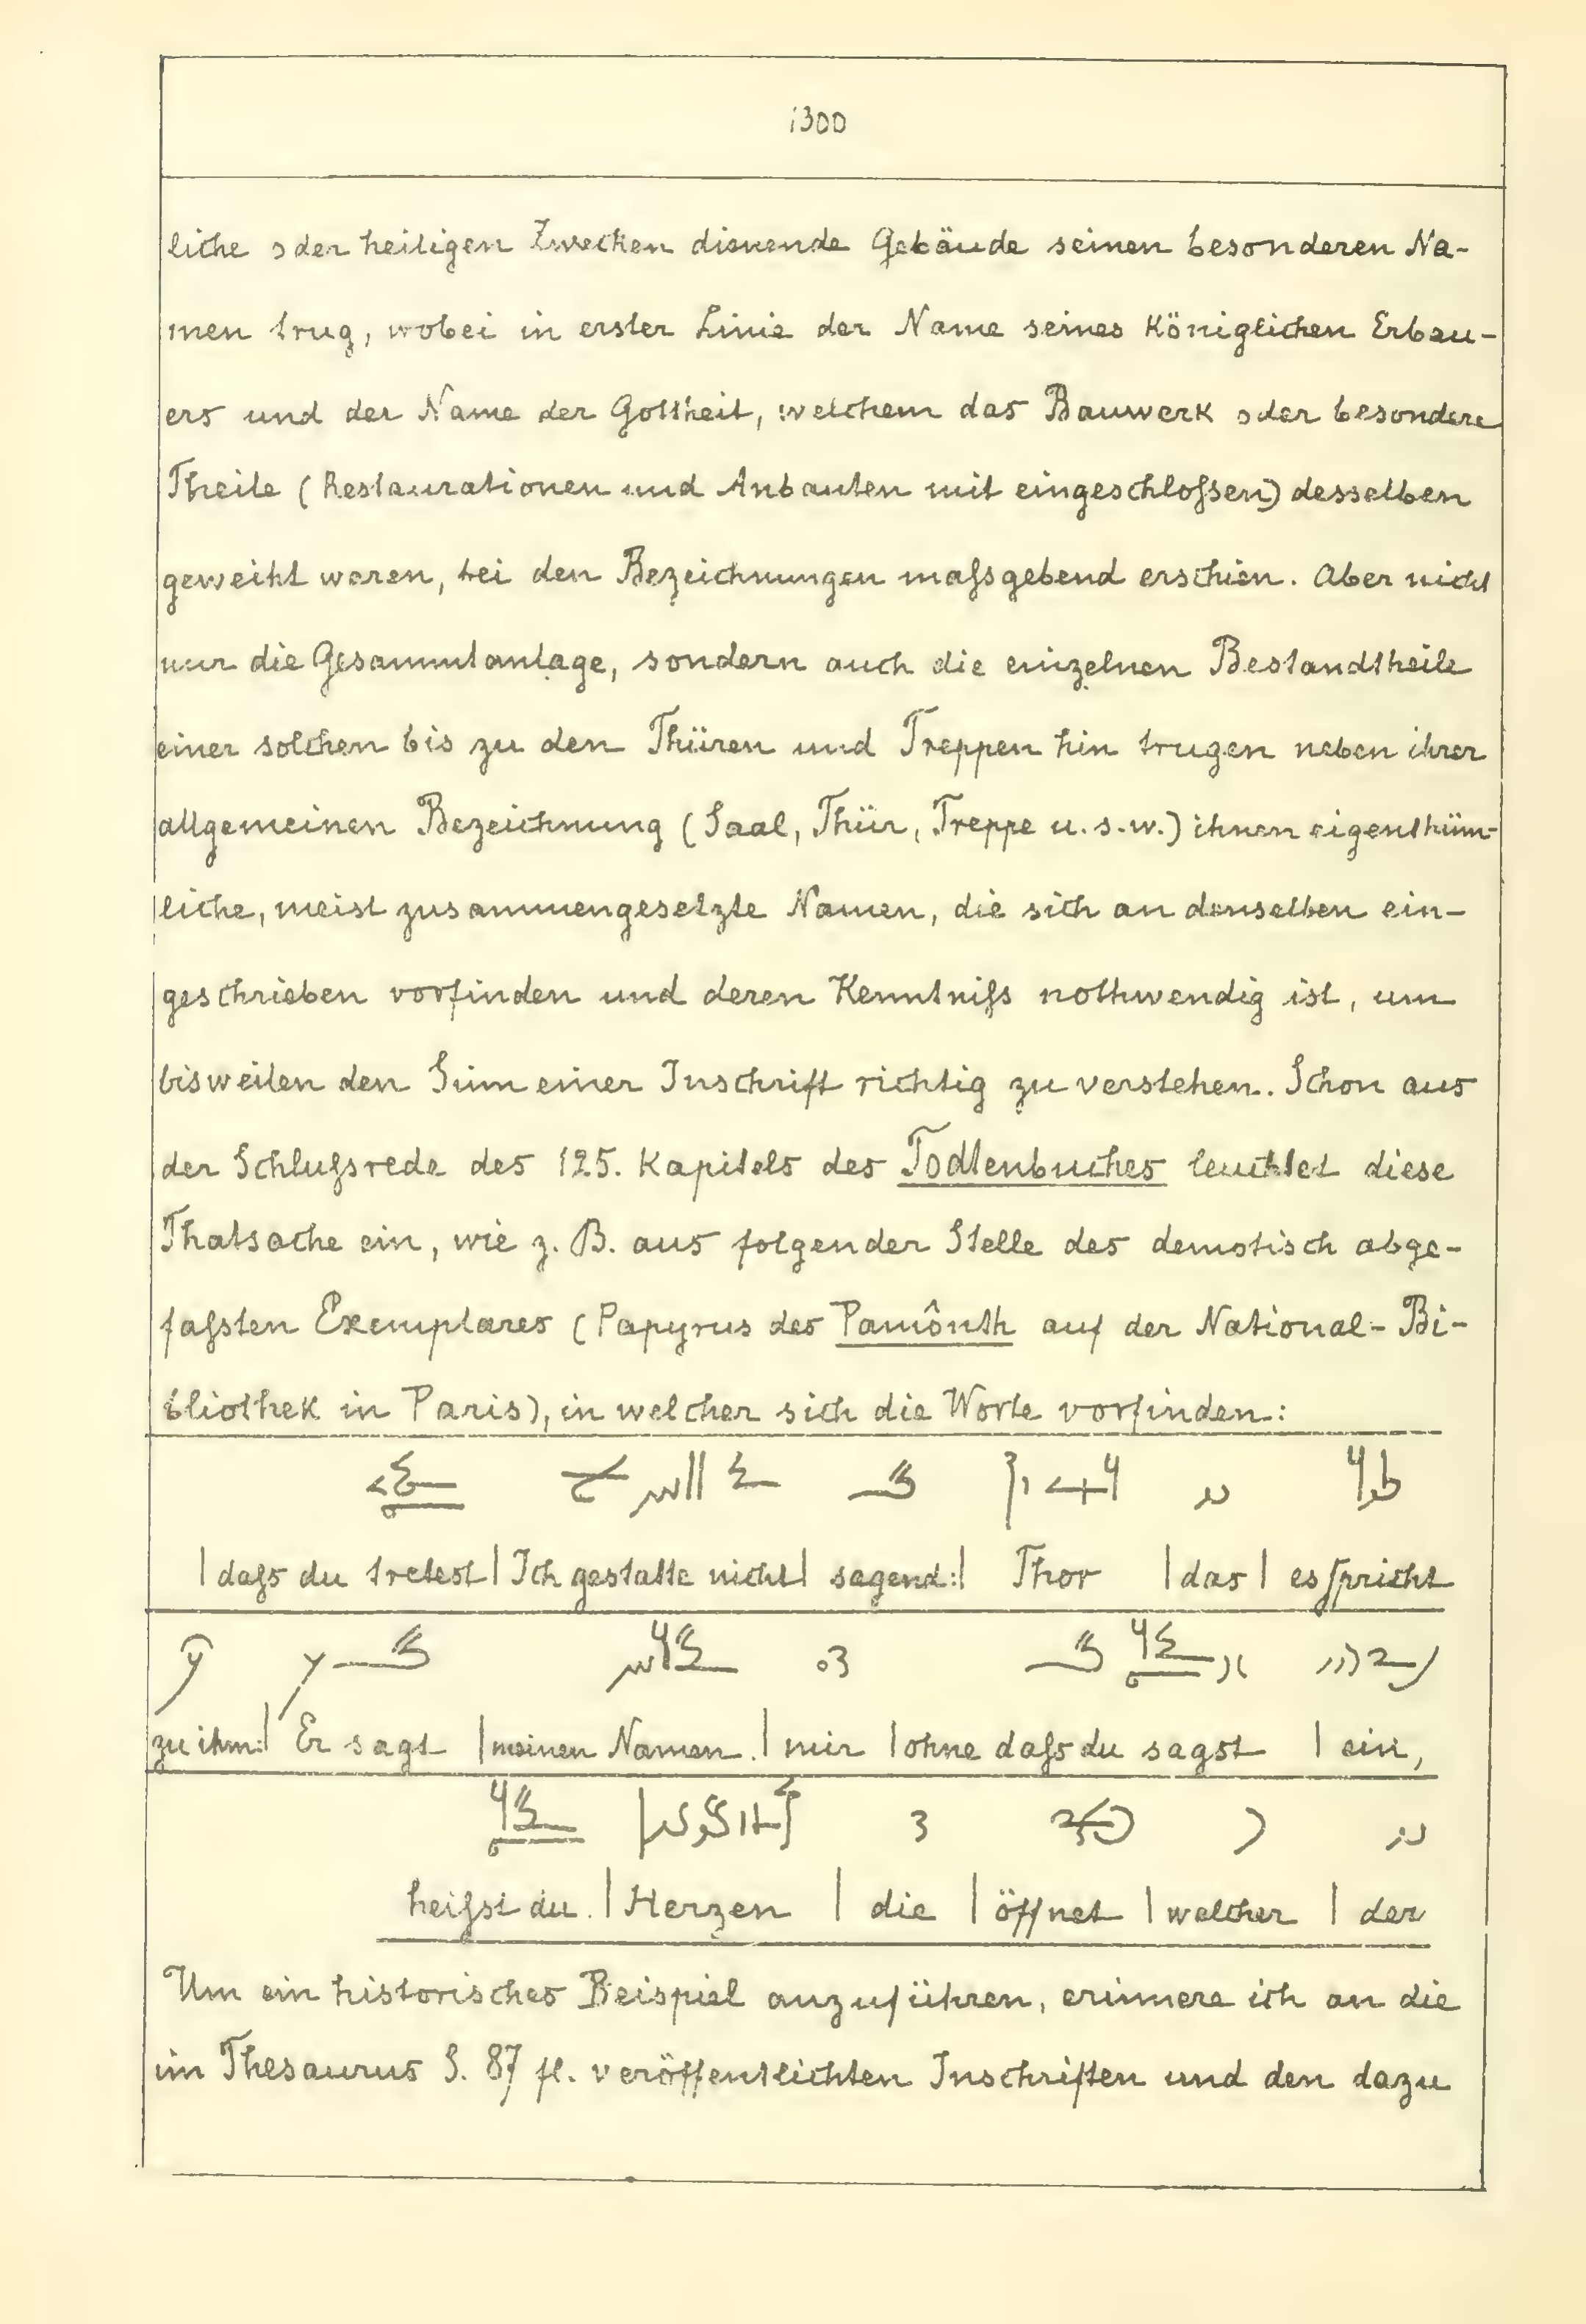 1300
liche oder heiligen Zwecken dienende Gebäude seinen besonderen Na-
men trug, wobei in erster Linie der Name seines Königlichen Erbau-
ers und der Name der Gottheit, welchem das Bauwerk oder besondere
Theile (Restaurationen und Anbauten mit eingeschloſsen) desselben
geweiht waren, bei den Bezeichnungen maſsgebend erschien. Aber nicht
nur die Gesammtanlage, sondern auch die einzelnen Bestandtheile
einer solchen bis zu den Thüren und Treppen hin trugen neben ihrer
allgemeinen Bezeichnung (Saal, Thür, Treppe u. s. w.) ihnen eigenthüm-
liche, meist zusammengesetzte Namen, die sich an denselben ein-
geschrieben vorfinden und deren Kenntniſs nothwendig ist, um
bisweilen den Sinn einer Inschrift richtig zu verstehen. Schon aus
der Schluſsrede des 125. Kapitels des Todtenbuches leuchtet diese
Thatsache ein, wie z. B. aus folgender Stelle des demotisch abge-
faſsten Exemplares (Papyrus des Pamônth auf der National-Bi-
bliothek in Paris), in welcher sich die Worte vorfinden:
| daſs du tretest | Ich gestatte nicht | sagend: | Thor | das | es spricht
zu ihm: | Er sagt | meinen Namen. | mir | ohne daſs du sagst | ein,
heiſst du. | Herzen | die | öffnet | welcher | der
Um ein historisches Beispiel anzuführen, erinnere ich an die
im Thesaurus S. 87 fl. veröffentlichten Inschriften und den dazu